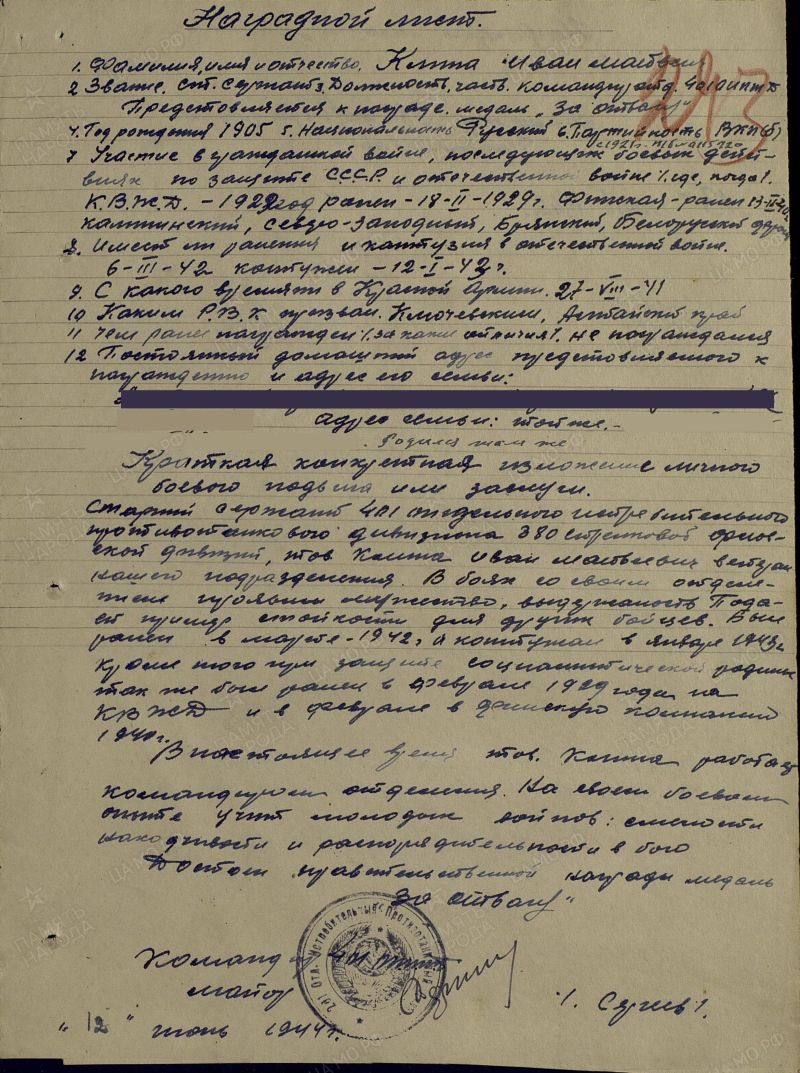 Наградной лист.
1. Фамилия, имя и отчество. Клипа Иван Матвеевич
2 Звание. ст. сержант 3. Должность, часть. командир отд. 401 ОИПТД
Представляется к награде. медаль "За отвагу"
4. Год рождения 1905 5. Национальность Русский 6. Партийность ВКП(б)
с 1921 г.
7 Участие в гражданской войне, последующих боевых дейст-
виях по защите С.С.С.Р. и отечественной войне /. где, когда /.
К.В.Ж.Д. - 1929 год ранен - 18-II-1929 г. Финская - ранен 13-II-40
калининский, северо-западный, Брянский, Белорусский
8. Имеет ли ранения и контузия в отечественной войне.
6-III-42 контужен - 12-I-43 г.
9. С какого времяни в Красной Армии. 27-VIII-41
10 Каким Р.В.К призван. Ключевским, Алтайский край
11 Чем ранее награжден /. за какие отличия /. не награждался
12 Постоянный домашний адрес представляемого к
награждению и адрес его семьи:
адрес семьи: тот же. -
родился там же
Краткая конкретная изложение личного
боевого подвига или заслуги.
Старший сержант 401 отдельного истребительного
противотанкового дивизиона 380 стрелковой Орлов-
ской дивизий, тов. Иван Матвеевич ветеран
нашего подразделения. В боях со своим отделе-
нием проявил мужество, выдержаность Пода-
ет пример стойкости для других бойцев. Был
ранен в марте - 1942 г и контужен в январе 1943 г
кроме того при защите социалистической родины
так же был ранен в феврале 1929 года на
КВЖД и в феврале в финскую компанию
1940 г.
В настоящее время тов. работая
командиром отделения. На своем боевом
опыте учит молодых воинов: смелости
находчивости и распорядительности в бою
Достоин правительственной награды медаль
"За отвагу"
Командир 401
майор /. Сучев /.
"12" июнь 1944 г.
213